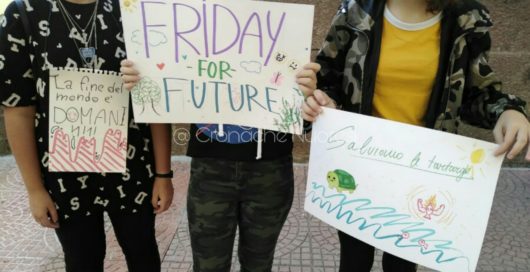 FRIDAY
FOR
FUTURE
La fine del
mondo è
DOMANI
!!!!
Salviamo le tartarughe
@ Cronache Nuo